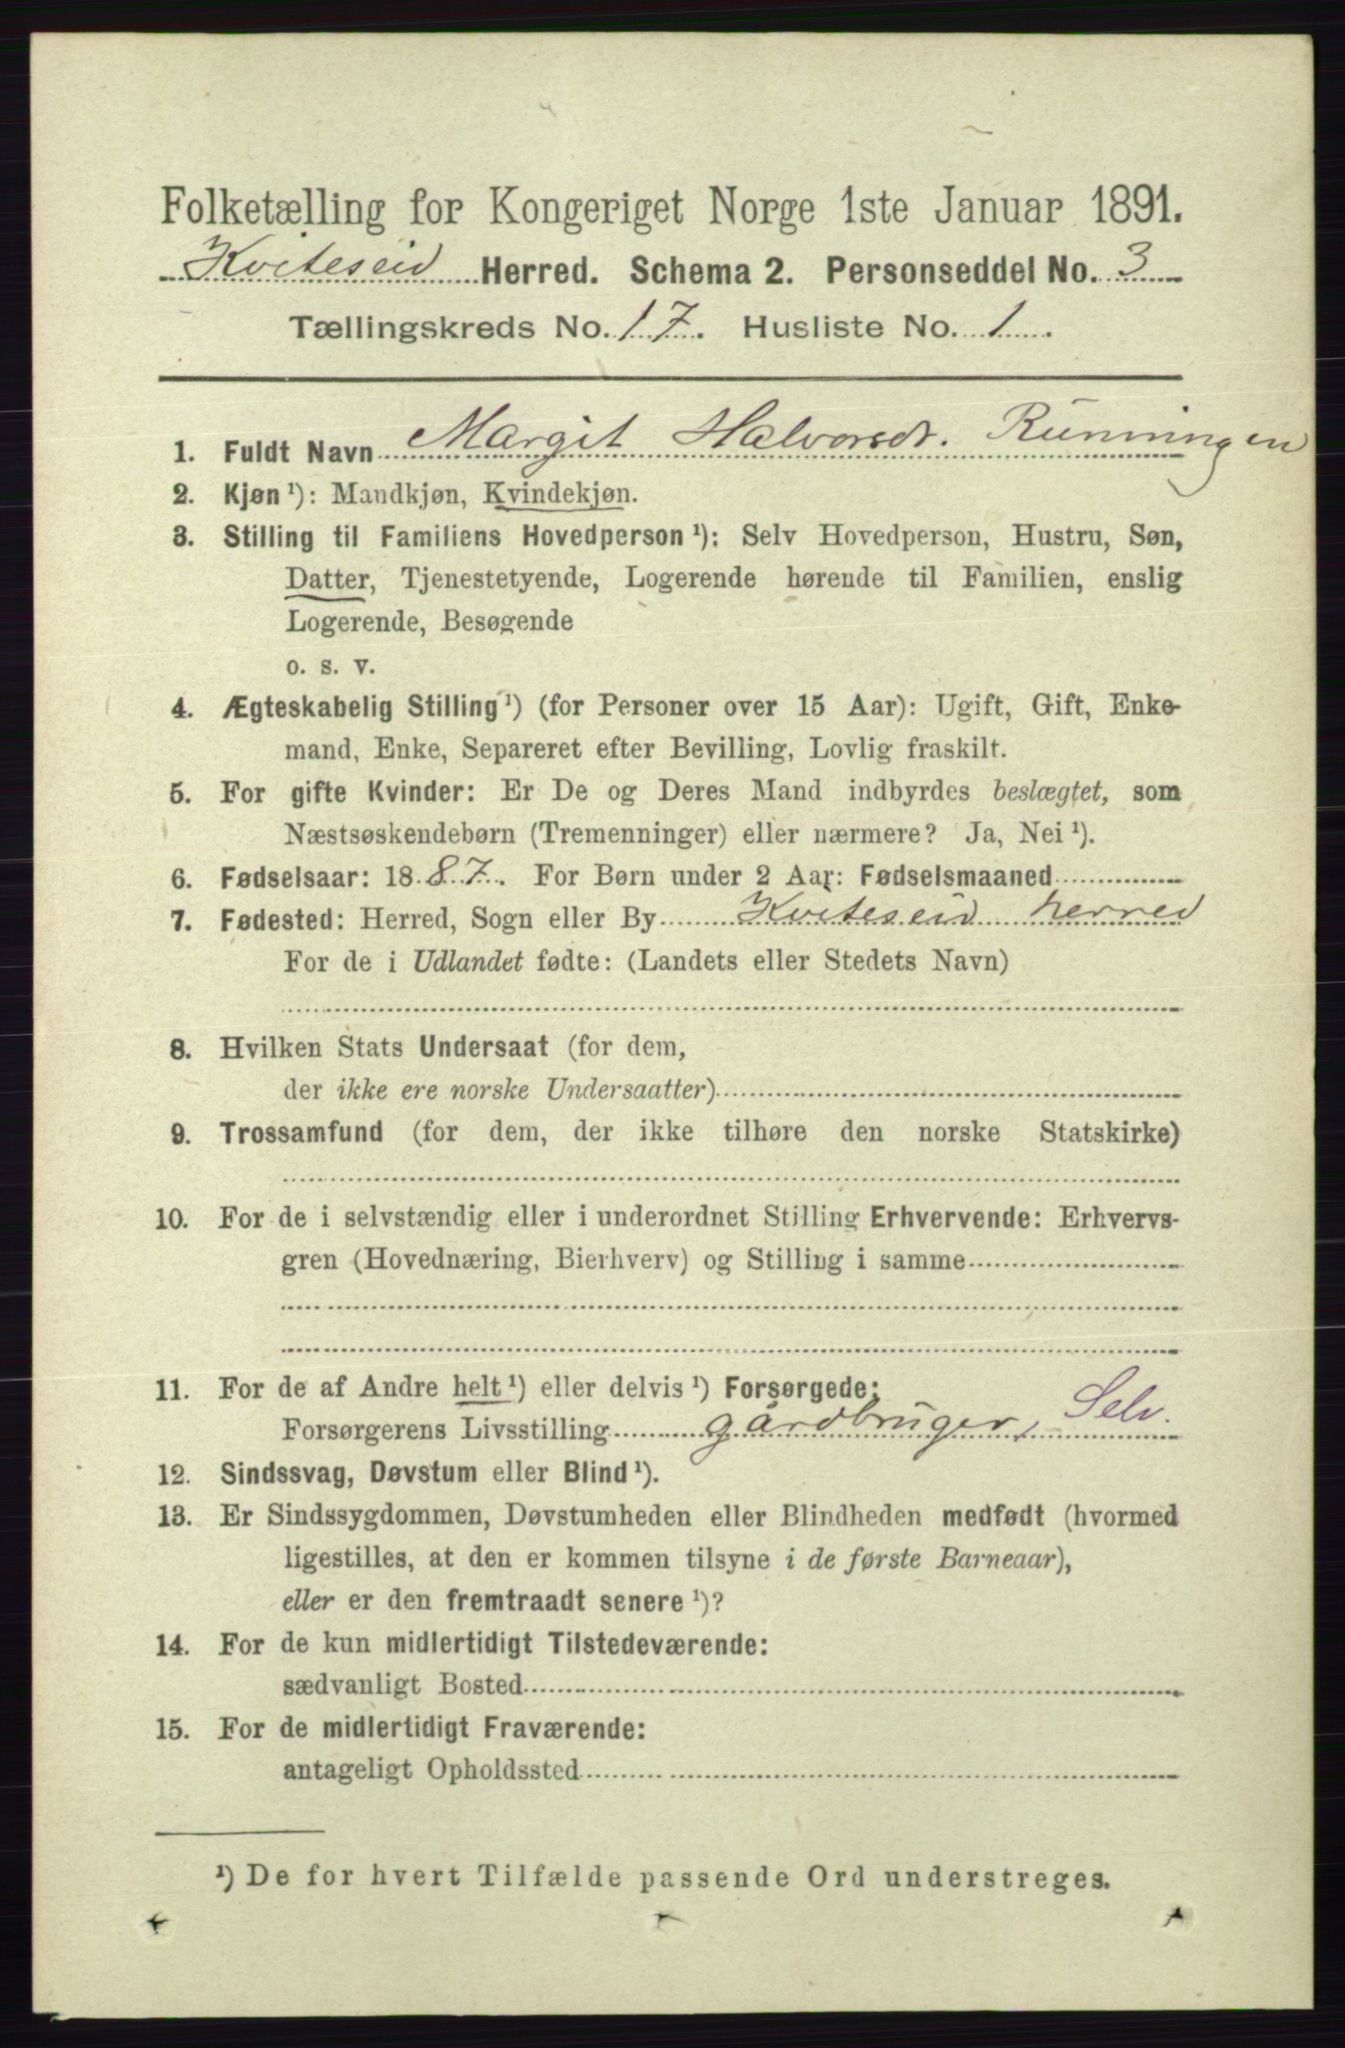 Folketælling for Kongeriget Norge 1ste Januar 1891.
Kviteseid Herred. Schema 2. Personseddel No. 3
Tællingskreds No. 17. Husliste No. 1.
1. Fuldt Navn Margit Halvorsdr. Runningen
2. Kjøn ¹): Mandkjøn, Kvindekjøn.
3. Stilling til Familiens Hovedperson ¹): Selv Hovedperson, Hustru, Søn,
Datter, Tjenestetyende, Logerende hørende til Familien, enslig
Logerende, Besøgende
o. s. v.
4. Ægteskabelig Stilling ¹) (for Personer over 15 Aar): Ugift, Gift, Enke-
mand, Enke, Separeret efter Bevilling, Lovlig fraskilt.
5. For gifte Kvinder: Er De og Deres Mand indbyrdes beslægtet, som
Næstsøskendebørn (Tremenninger) eller nærmere? Ja, Nei ¹).
6. Fødselsaar: 1887. For Børn under 2 Aar: Fødselsmaaned
7. Fødested: Herred, Sogn eller By Kviteseid herred
For de i Udlandet fødte: (Landets eller Stedets Navn)
8. Hvilken Stats Undersaat (for dem,
der ikke ere norske Undersaatter)
9. Trossamfund (for dem, der ikke tilhøre den norske Statskirke)
10. For de i selvstændig eller i underordnet Stilling Erhvervende: Erhvervs-
gren (Hovednæring, Bierhverv) og Stilling i samme
11. For de af Andre helt ¹) eller delvis ¹) Forsørgede:
Forsørgerens Livsstilling gårdbruger, Selv.
12. Sindssvag, Døvstum eller Blind ¹).
13. Er Sindssygdommen, Døvstumheden eller Blindheden medfødt (hvormed
ligestilles, at den er kommen tilsyne i de første Barneaar),
eller er den fremtraadt senere ¹)?
14. For de kun midlertidigt Tilstedeværende:
sædvanligt Bosted
15. For de midlertidigt Fraværende:
antageligt Opholdssted
¹) De for hvert Tilfælde passende Ord understreges.